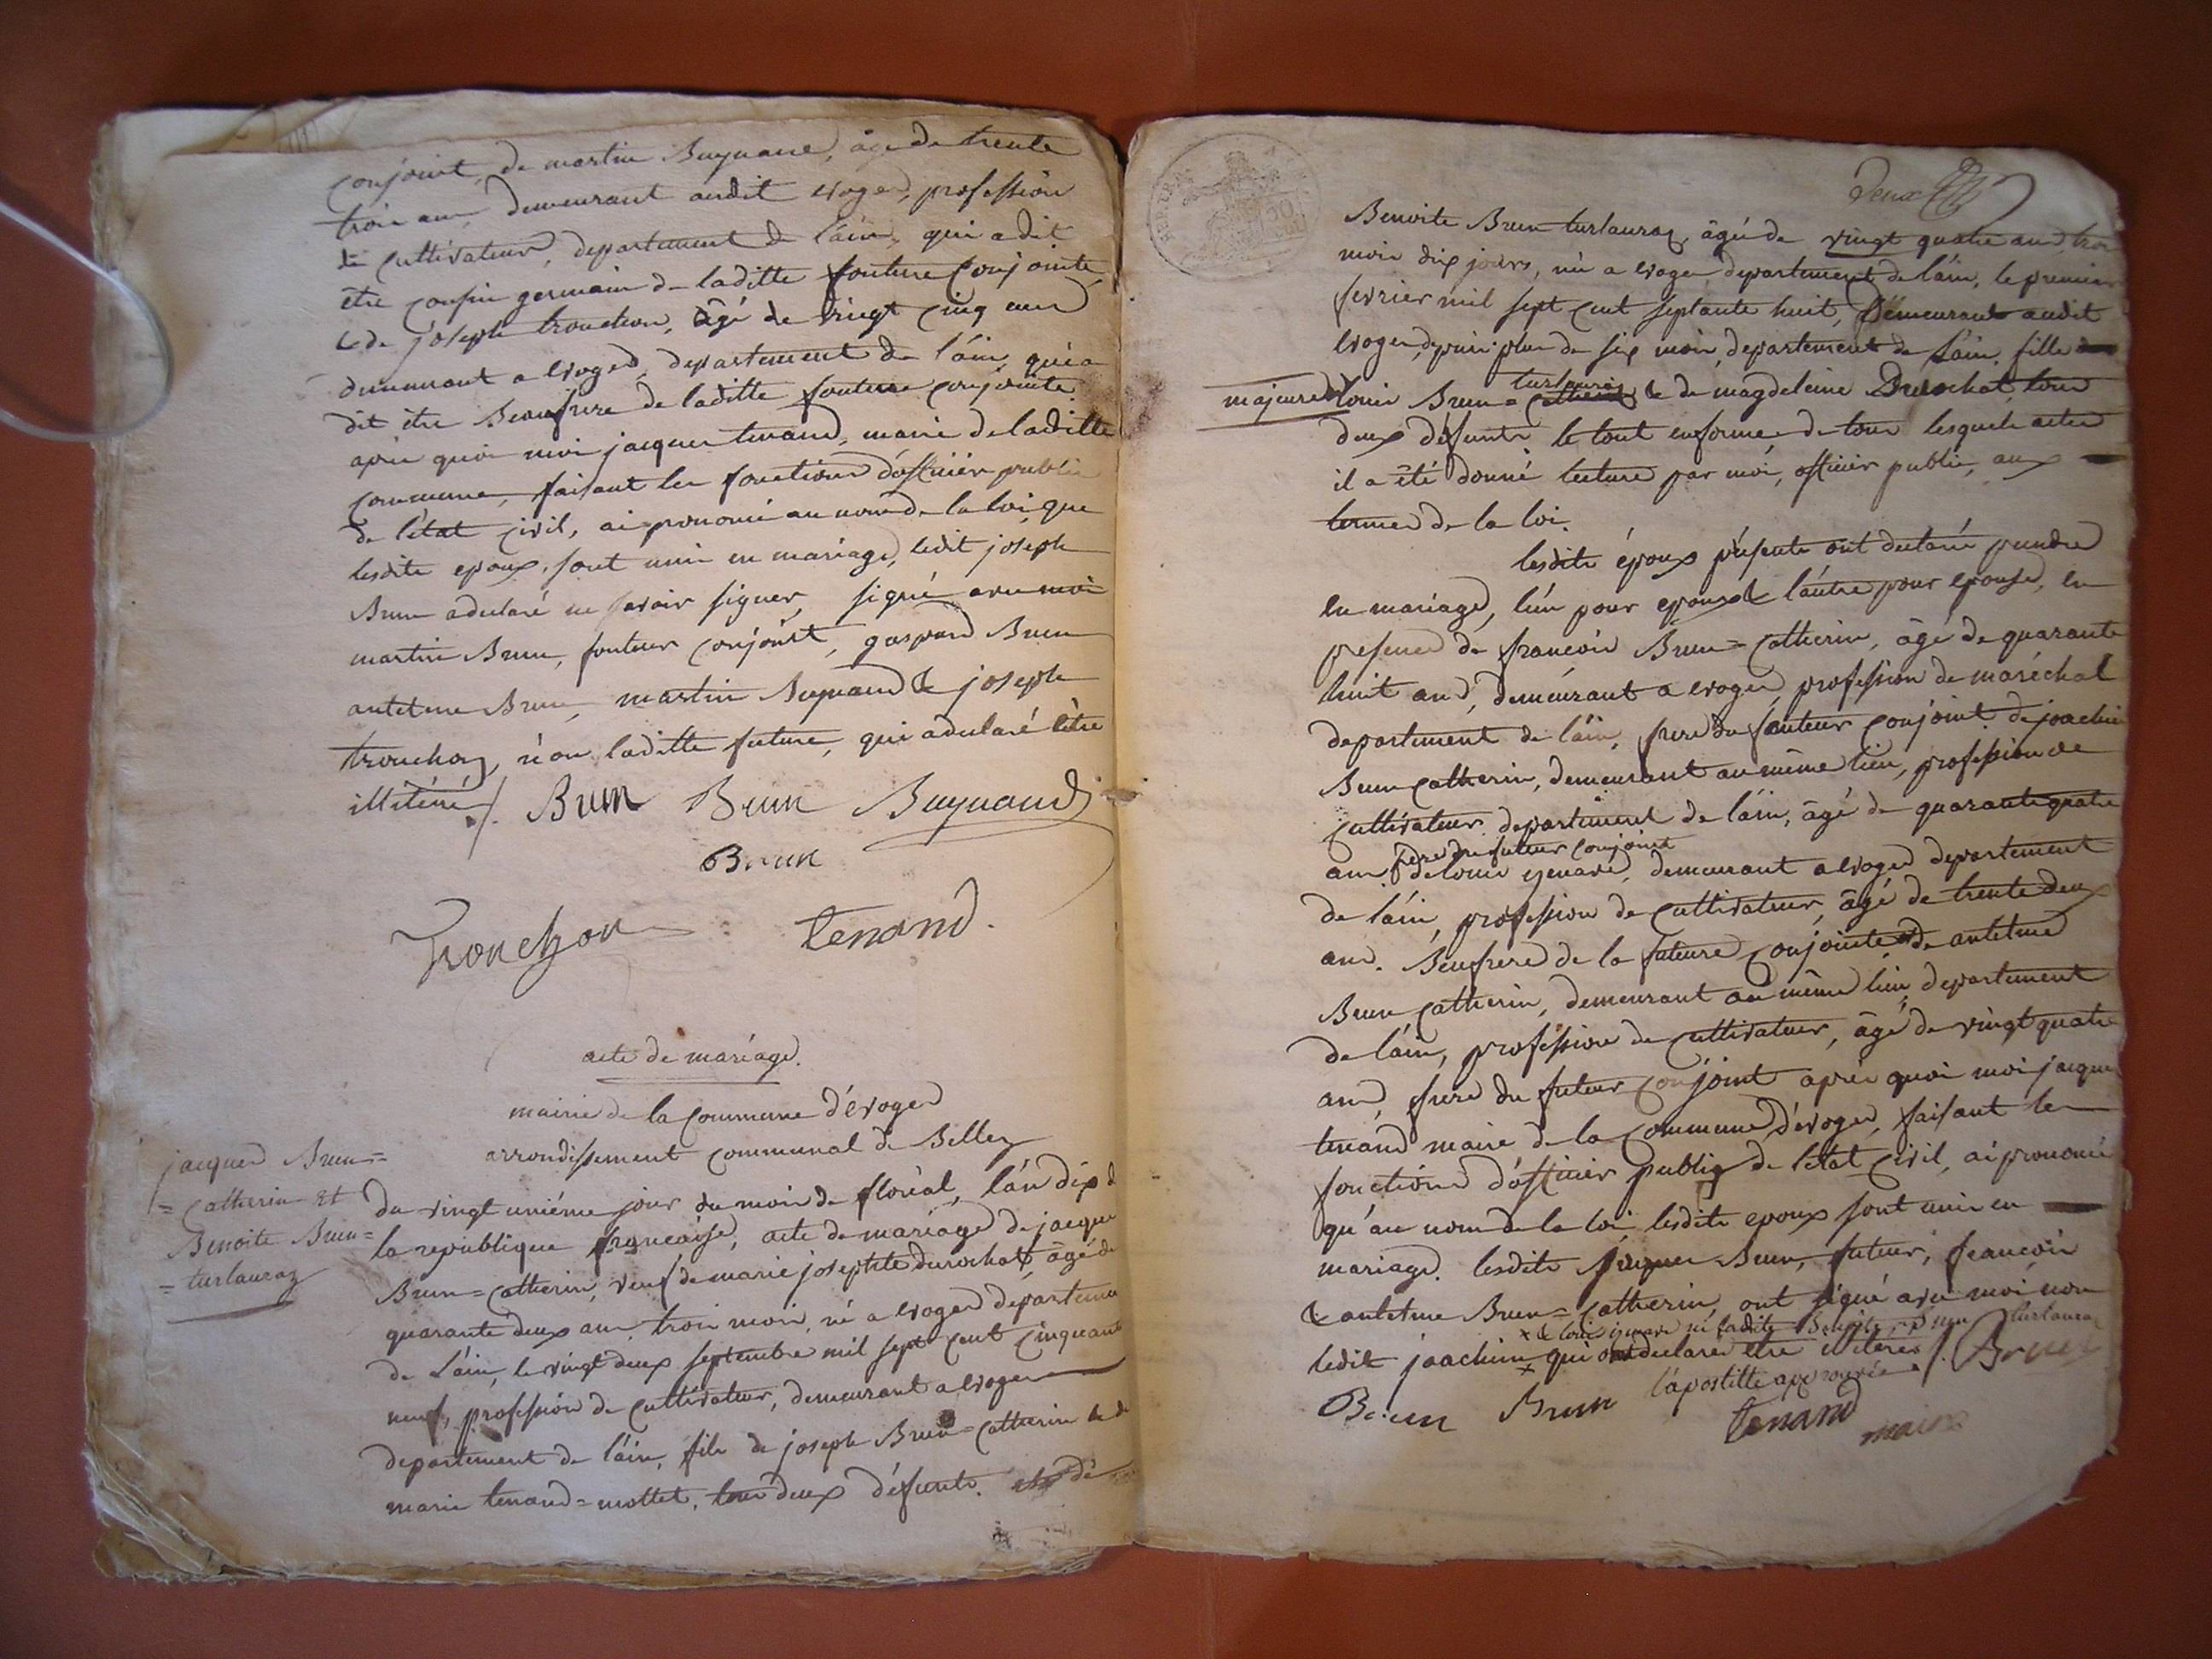 conjoint, de martin Buynand, âgé de trente
trois ans demeurant audit evoges, profession
de cultivateur, departement de l'ain, qui a dit
être cousin germain de laditte fouture conjointe
& de joseph tronchon, âgé de vingt cinq ans
demeurant a evoges, departement de l'ain, qui a
dit être Beaufrere de laditte fouture conjointe.
après quoi moi jacques tenand, maire de laditte
commune, faisant les fonctions d'officier public
de l'état civil, ai prononcé au nom de la loi, que
lesdits epoux, sont unis en mariage, ledit joseph
Brun a declaré ne savoir signer, signé avec moi
martin Brun, fouteur conjoint, gaspard Brun
antelme Brun, martin Buynand & joseph
tronchon, non laditte future, qui a declaré être
illitéré /. Brun Brun Buynand
Brun
Tronchon tenand.
acte de mariage.
mairie de la commune d'évoges
arrondissement communal de Belley
jacques Brun=
=catherin et
Benoite Brun=
=turlauraz
du vingt uniéme jour du mois de floréal, l'an dix d
la republique française, acte de mariage de jacques
Brun=catherin, veuf de marie josephte durochat, âgé de
quarante deux ans trois mois, né a evoges departeme
de l'ain, le vingt deux septembre mil sept cent cinquante
neuf, profession de cultivateur, demeurant a evoges
departement de l'ain, fils de joseph Brun=catherin & de
marie tenand=mottet, tous deux défunts. de
deux
Benoite Brun turlauraz, âgée de vingt quatre ans trois
mois dix jours, née a evoges departement de l'ain, le premier
fevrier mil sept cent septante huit, demeurant audit
evoges, depuis plus de six mois, departement de l'ain, fille
turlauraz
majeure de louis Brun=catherin & de magdeleine Durochat, tous
deux défunts le tout en forme de tous lesquels actes
il a été donné lecture par moi, officier public, aux
termes de la loi.
lesdits époux présents ont declaré prendre
en mariage, l'un pour epoux & l'autre pour epouse, en
presence de françois Brun=catherin, âgé de quarante
huit ans, demeurant a evoges profession de maréchal
departement de l'ain, frere du fouteur conjoint. de joachim
Brun catherin, demeurant au même lieu, profession de
cultivateur, departement de l'ain, âgé de quarante quatre
frere du futeur conjoint
ans de louis ymare, demeurant a evoges departement
de l'ain, profession de cultivateur, âgé de trente deux
ans. Beufrere de la future conjointe, de antelme
Brun catherin, demeurant au même lieu, departement
de l'ain, profession de cultivateur, âgé de vingt quatre
ans, frere du futeur conjoint après quoi moi jacques
tenand maire de la commune d'évoges, faisant les
fonctions d'officier public de l'état civil, ai prononcé
qu'au nom de la loi lesdits epoux sont unis en
mariage. lesdits jacques Brun, futeur, françois
& antelme Brun=catherin, ont signé avec moi, non
x & louis ymare ni ladite Benoite Brun turlauraz
ledit joachim x qui ont declaré être illiteres /. Brun
l'apostille approuvée
Brun Brun tenand maire